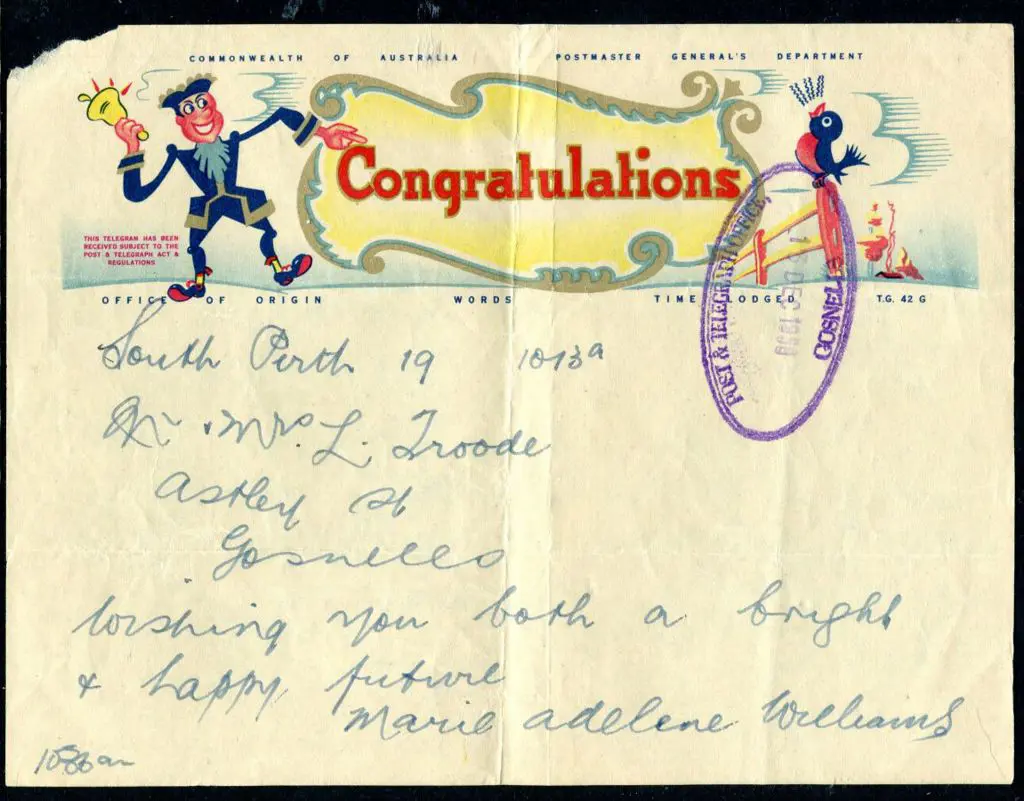 COMMONWEALTH OF AUSTRALIA POSTMASTER GENERAL'S DEPARTMENT
Congratulations
THIS TELEGRAM HAS BEEN
RECEIVED SUBJECT TO THE
POST & TELEGRAPH ACT &
REGULATIONS
OFFICE OF ORIGIN WORDS TIME LODGED T.G. 42 G
POST & TELEGRAPH OFFICE,
DEC
GOSNELLS
South Perth 19 1013a
Mr & Mrs L. Troode
Astley St
Gosnells
Wishing you both a bright
& happy future
Marie Adelene Williams